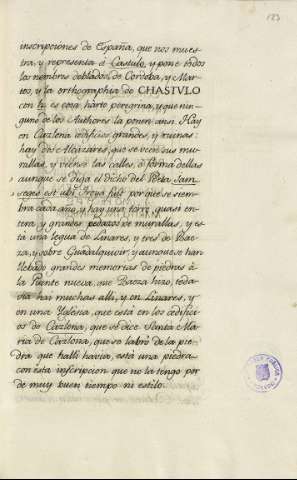 123
inscripciones de España, que nos mues-
tra, y representa à Castulo, y pone todos
los nombres doblados, de Cordoba, y Mar-
tos, y la orthographia de CHASTVLO
con h, es cosa harto peregrina, y que nin-
guno de los Authores la ponen ansi. Hay
en Cazlona ædificios grandes, y ruinas:
hay dos Alcázares, que se veen sus mu-
rallas, y veense las calles, ò forma dellas
aunque se diga el dicho del Poeta Jam
seges est ubi Troya fuit porque se siem-
bra cada año, y hay una torre quasi en-
tera, y grandes pedazos de murallas, y es-
tà una legua de Linares, y tres de Bae-
za, y sobre Guadalquivir, y aunque se han
llebado grandes memorias de piedras à
la Puente nueva, que Baeza hizo, toda-
via hai muchas alli, y en Linares, y
en una Yglesia, que està en los ædifici-
os de Cazlona, que se dice Santa Ma-
ria de Cazlona, que se labrò de la pie-
dra que halli havia, està una piedra
con esta inscripcion que no la tengo por
de muy buen tiempo ni estilo.